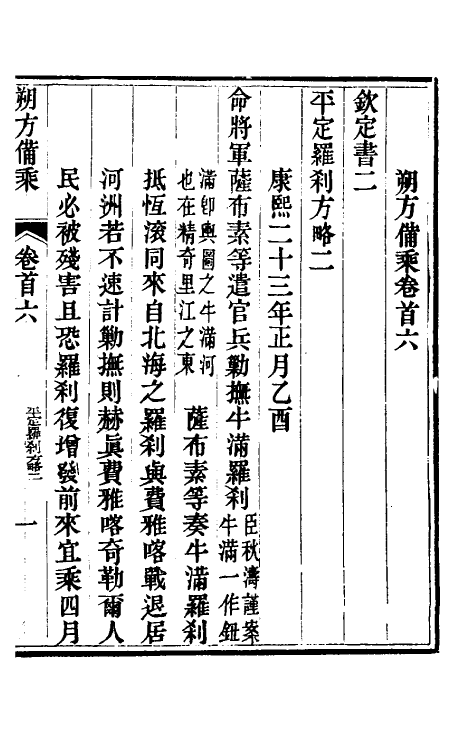 朔方備乘卷首六
欽定書二
平定羅刹方略二
康熙二十三年正月乙酉
命將軍薩布素等遣官兵勦撫牛滿羅刹臣秋濤謹案
牛滿一作鈕
滿卽輿圖之牛滿河
也在精奇里江之東
薩布素等奏牛滿羅刹
抵恆滾同來自北海之羅刹與費雅喀戰退居
河洲若不速計勦撫則赫眞費雅喀奇勒爾人
民必被殘害且恐羅刹復增發前來宜乘四月
朔方備乘
卷首六
平定羅刹方略二
一